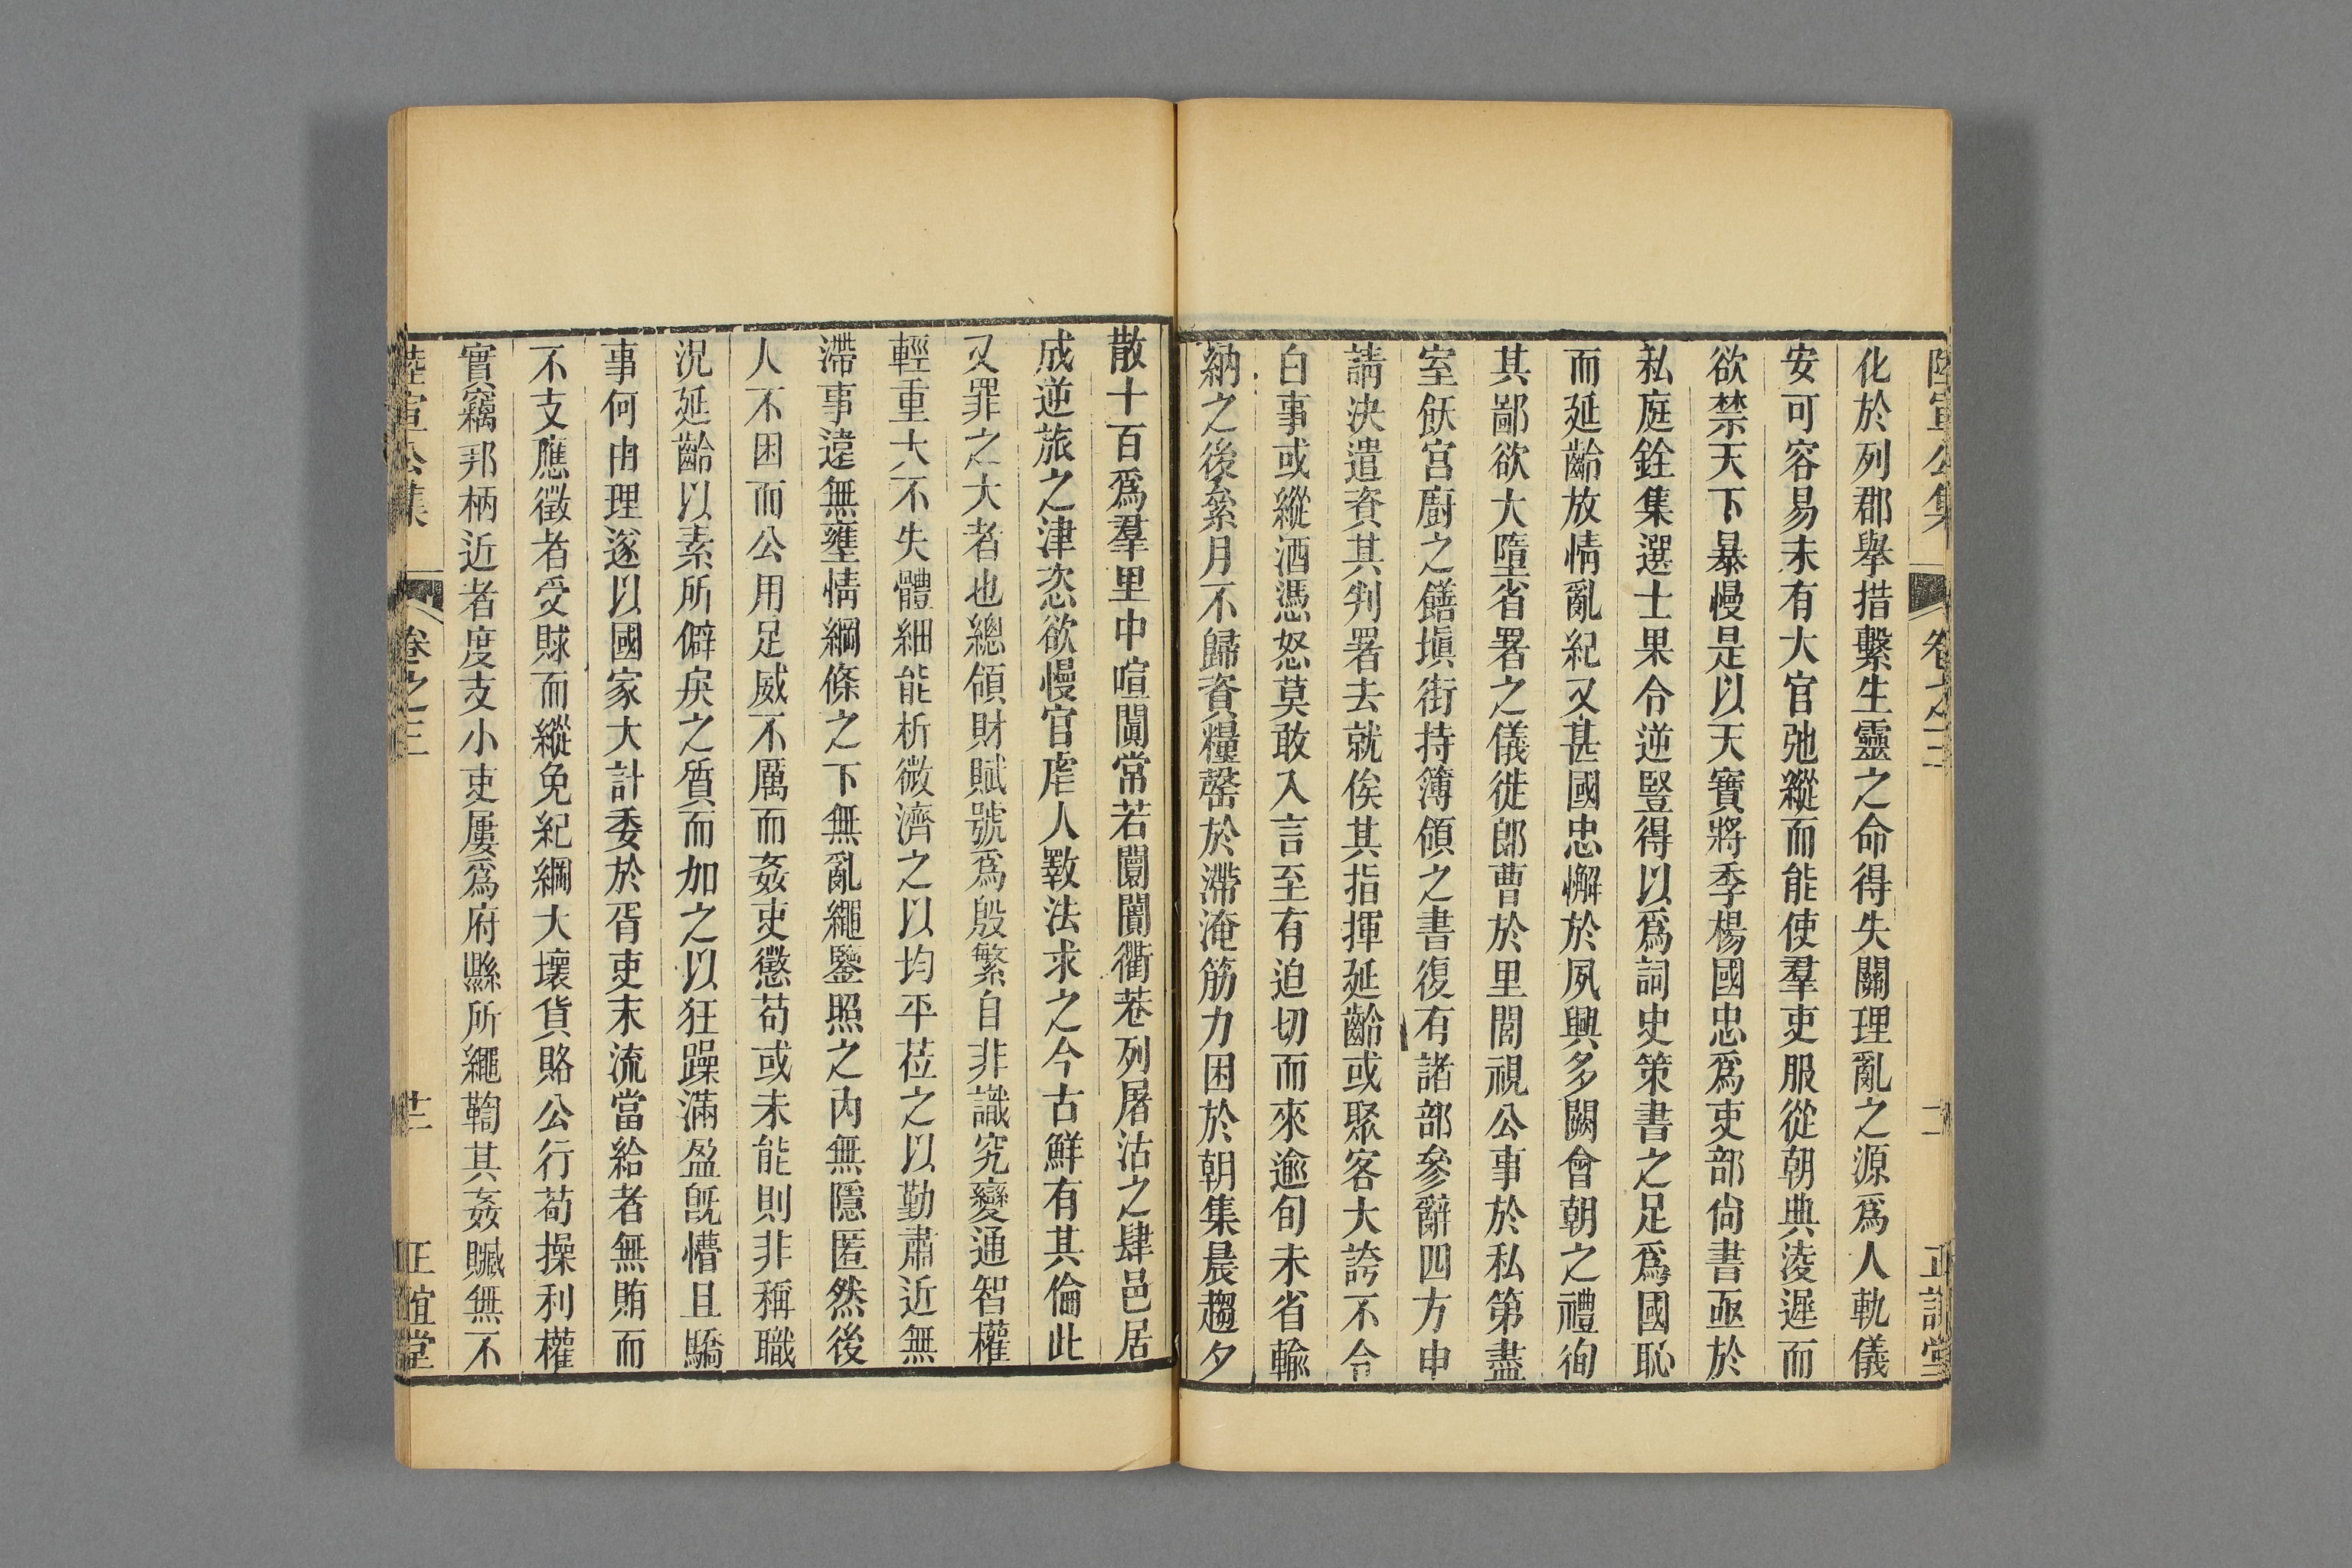 化於列郡舉措繫生靈之命得失關理亂之源爲人軌儀
安可容易未有大官弛縱而能使羣吏服從朝典淩遲而
欲禁天下暴慢是以天寶將季楊國忠爲吏部尙書亟於
私庭銓集選士果令逆豎得以爲詞史策書之足爲國恥
而延齡放情亂紀又甚國忠懈於夙興多闕會朝之禮徇
其鄙欲大隳省署之儀徙郎曹於里閭視公事於私第盡
室飫宮廚之饍塡街持簿領之書復有諸部參辭四方申
請決遣資其判署去就俟其指揮延齡或聚客大誇不令
白事或縱酒憑怒莫敢入言至有迫切而來逾旬未省輸
納之後絫月不歸資糧罄於滯淹筋力困於朝集晨趨夕
散十百爲羣里中喧闐常若闤闠衢巷列屠沽之肆邑居
成逆旅之津恣欲慢官虐人斁法求之今古鮮有其倫此
又罪之大者也總領財賦號爲殷繁自非識究變通智權
輕重大不失體細能析微濟之以均平莅之以勤肅近無
滯事遠無壅情綱條之下無亂繩鑒照之內無隱匿然後
人不困而公用足威不厲而姦吏懲苟或未能則非稱職
況延齡以素所僻戾之質而加之以狂躁滿盈旣懵且驕
事何由理遂以國家大計委於胥吏末流當給者無賄而
不支應徵者受賕而縱免紀綱大壞貨賂公行苟操利權
實竊邦柄近者度支小吏屢爲府縣所繩鞫其姦贓無不
陸宣公集 卷之三 廿二 正誼堂